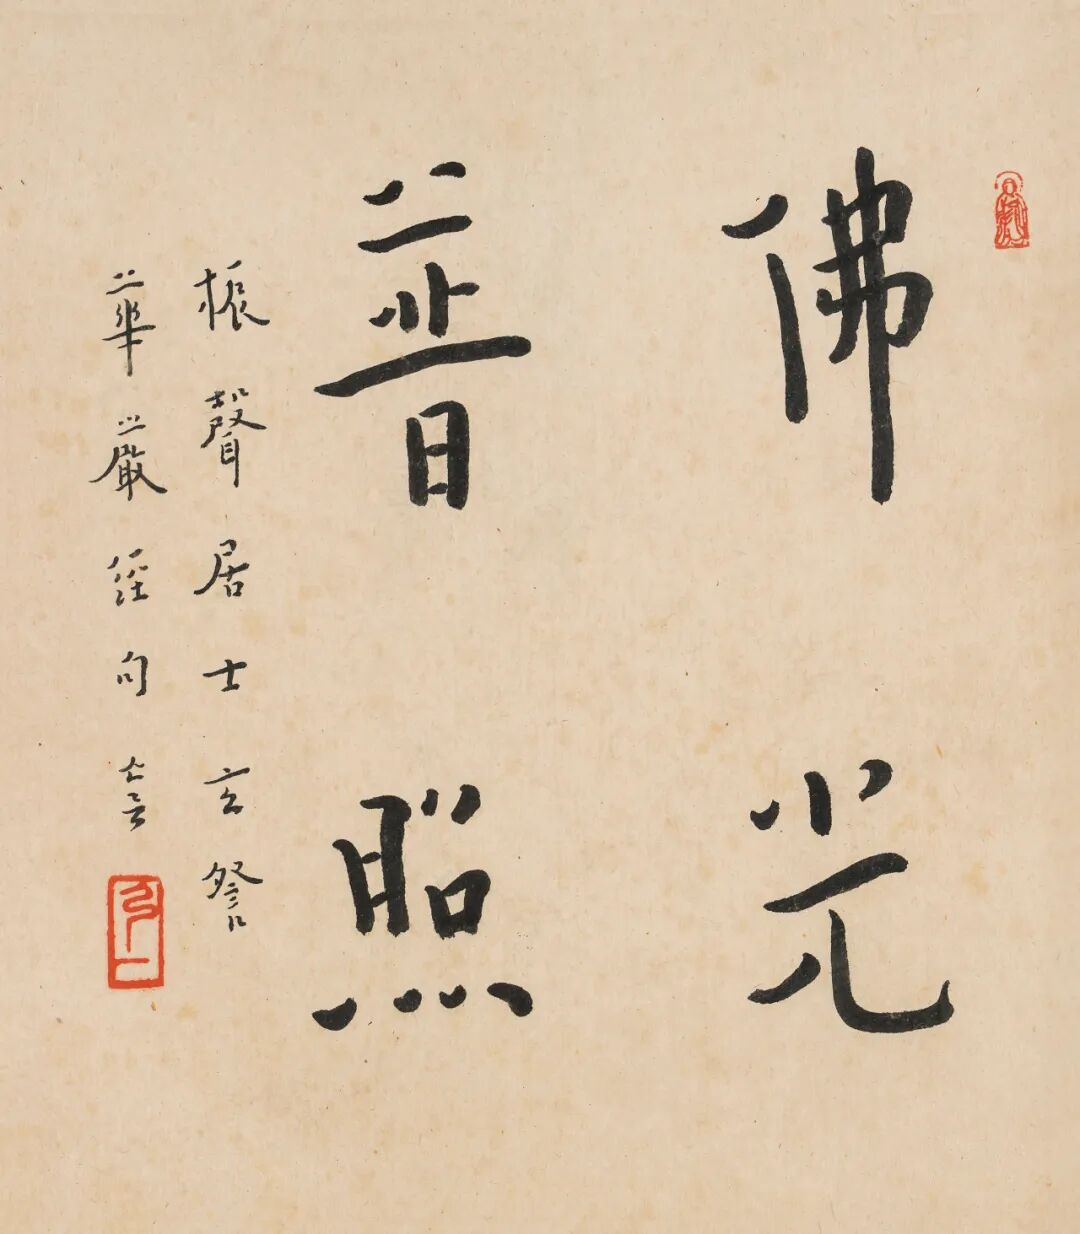 佛光
普照
振聲居士玄詧
華嚴經句
弘一